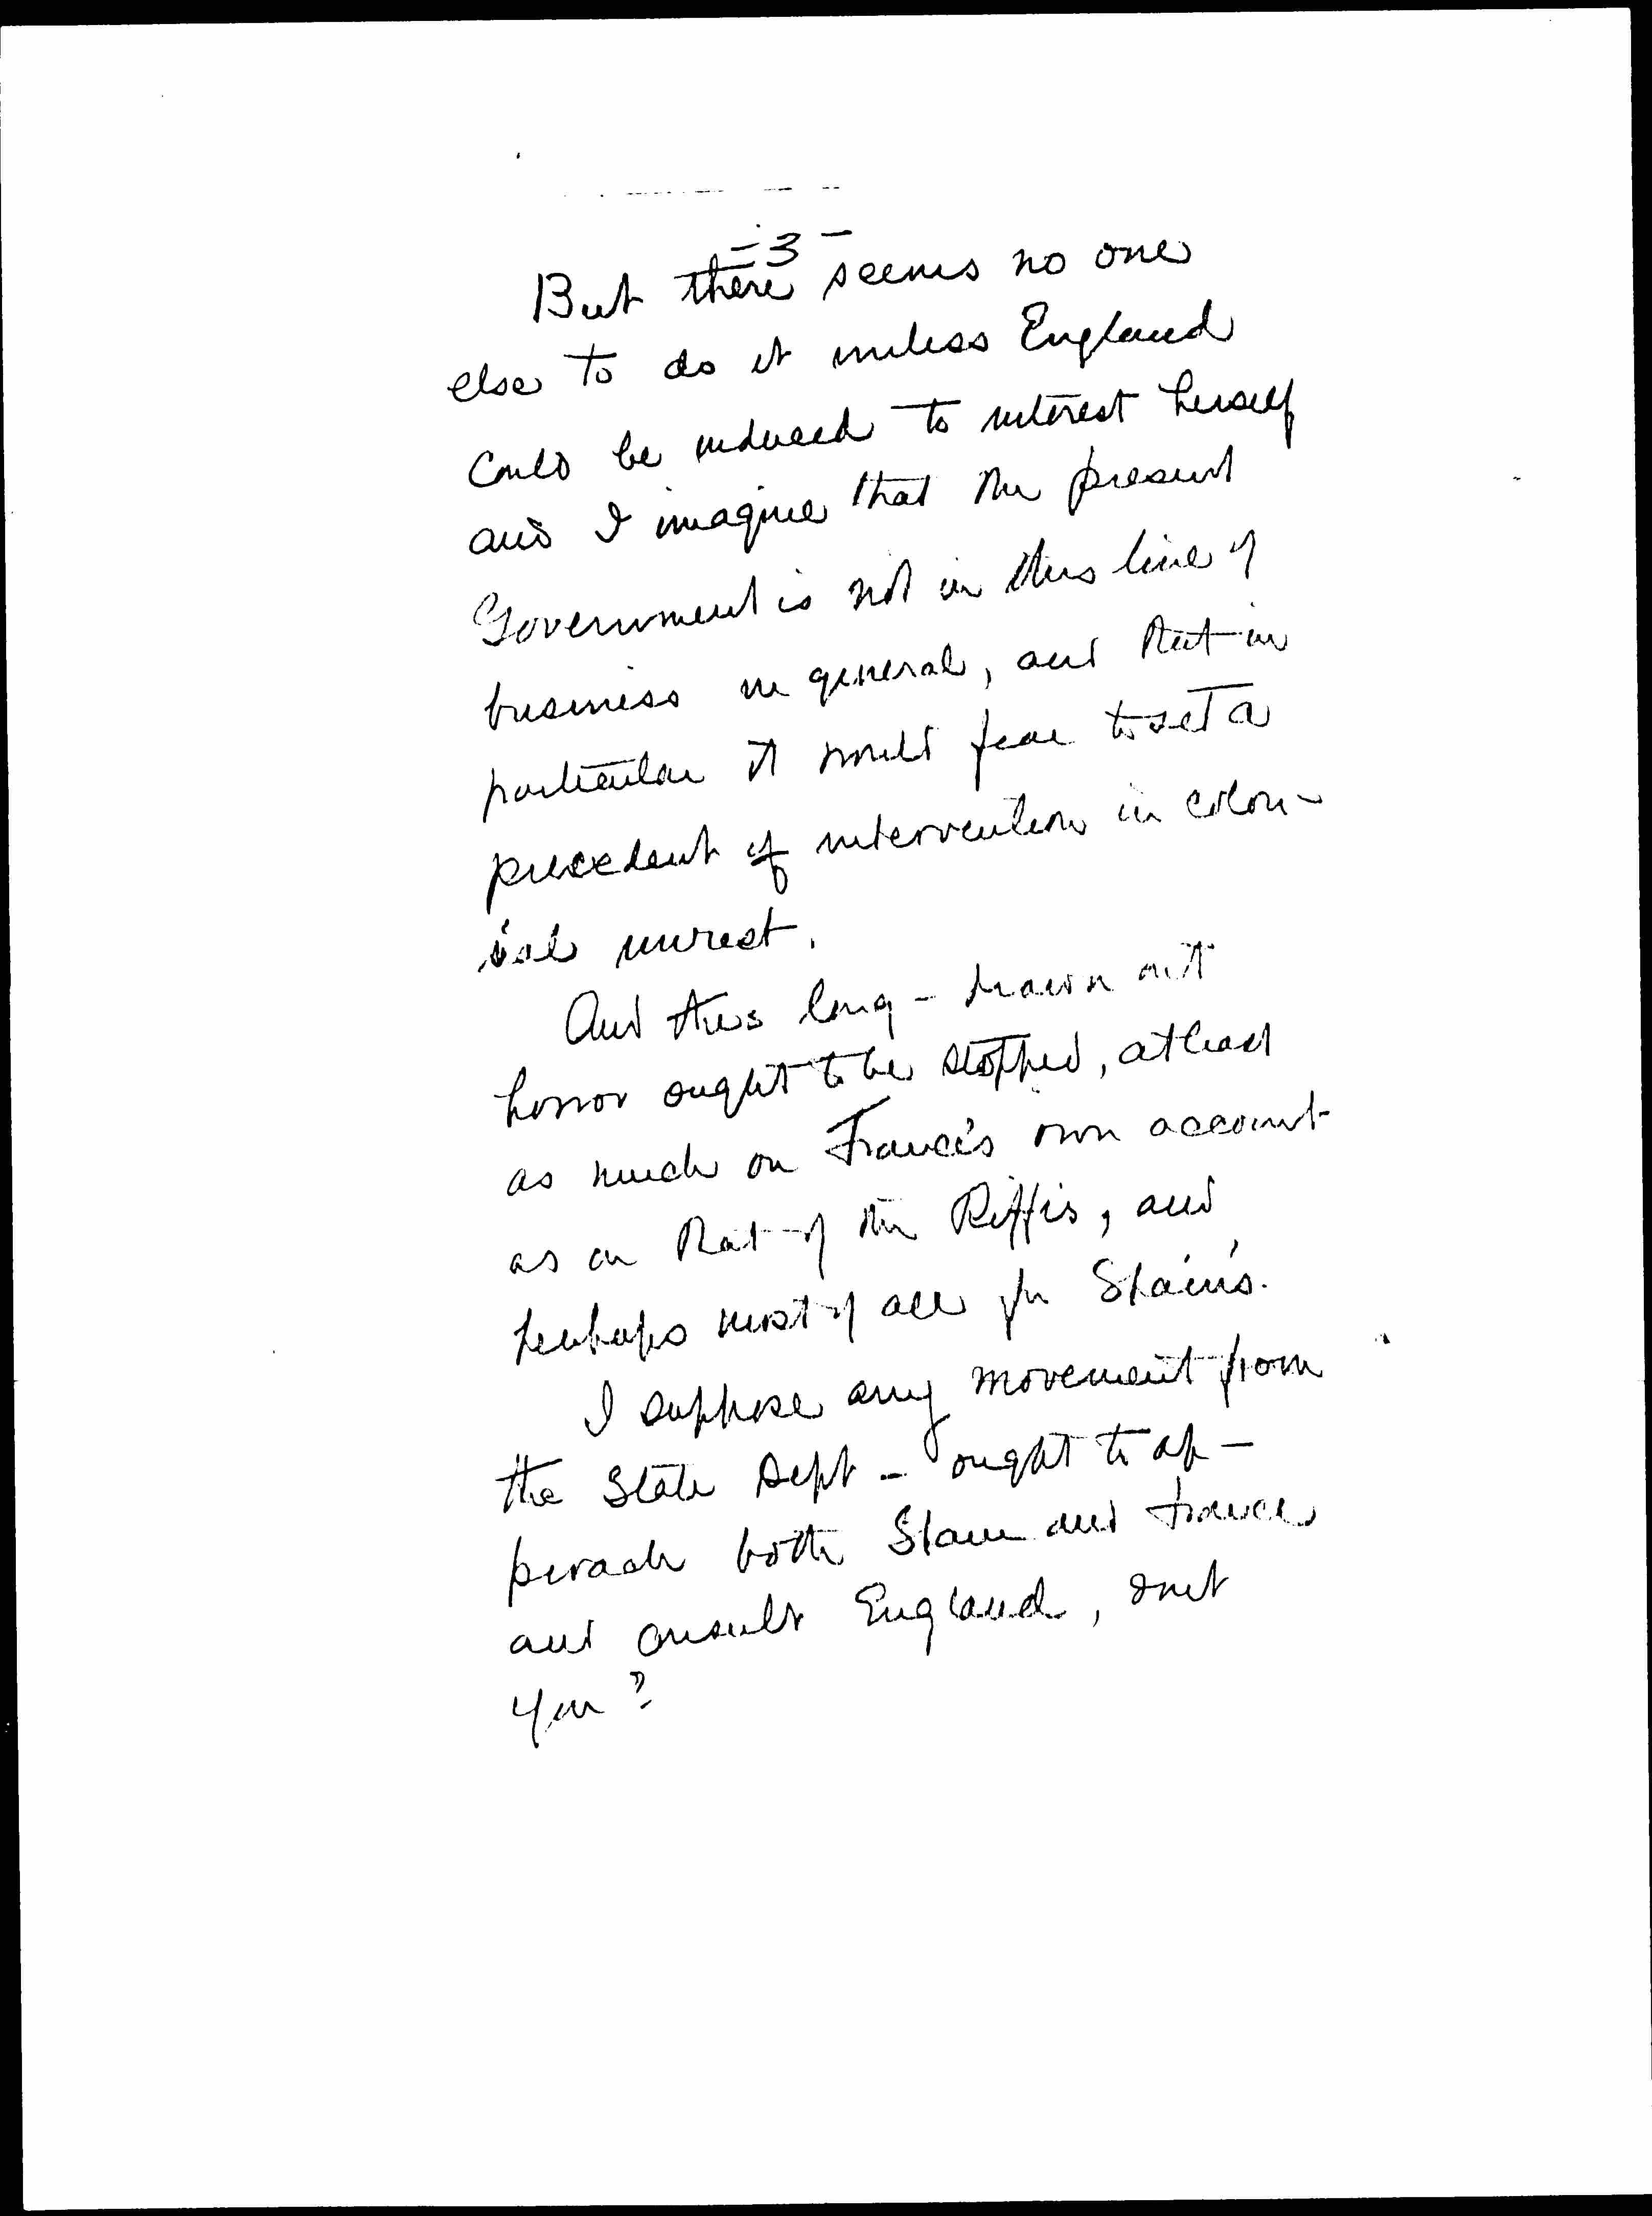 - 3 -
But there seems no one
else to do it unless England
could be induced to interest herself
and I imagine that the present
Government is not in this line of
business in general, and that in
particular it would fear to set a
precedent of intervention in colon-
ial unrest.
And this long-drawn out
horror ought to be stopped, at least
as much on France's own account
as on that of the Riffis, and
perhaps most of all for Spain's.
I suppose any movement from
the State Dept - ought to ap-
proach both Spain and France
and consult England, don't
you?